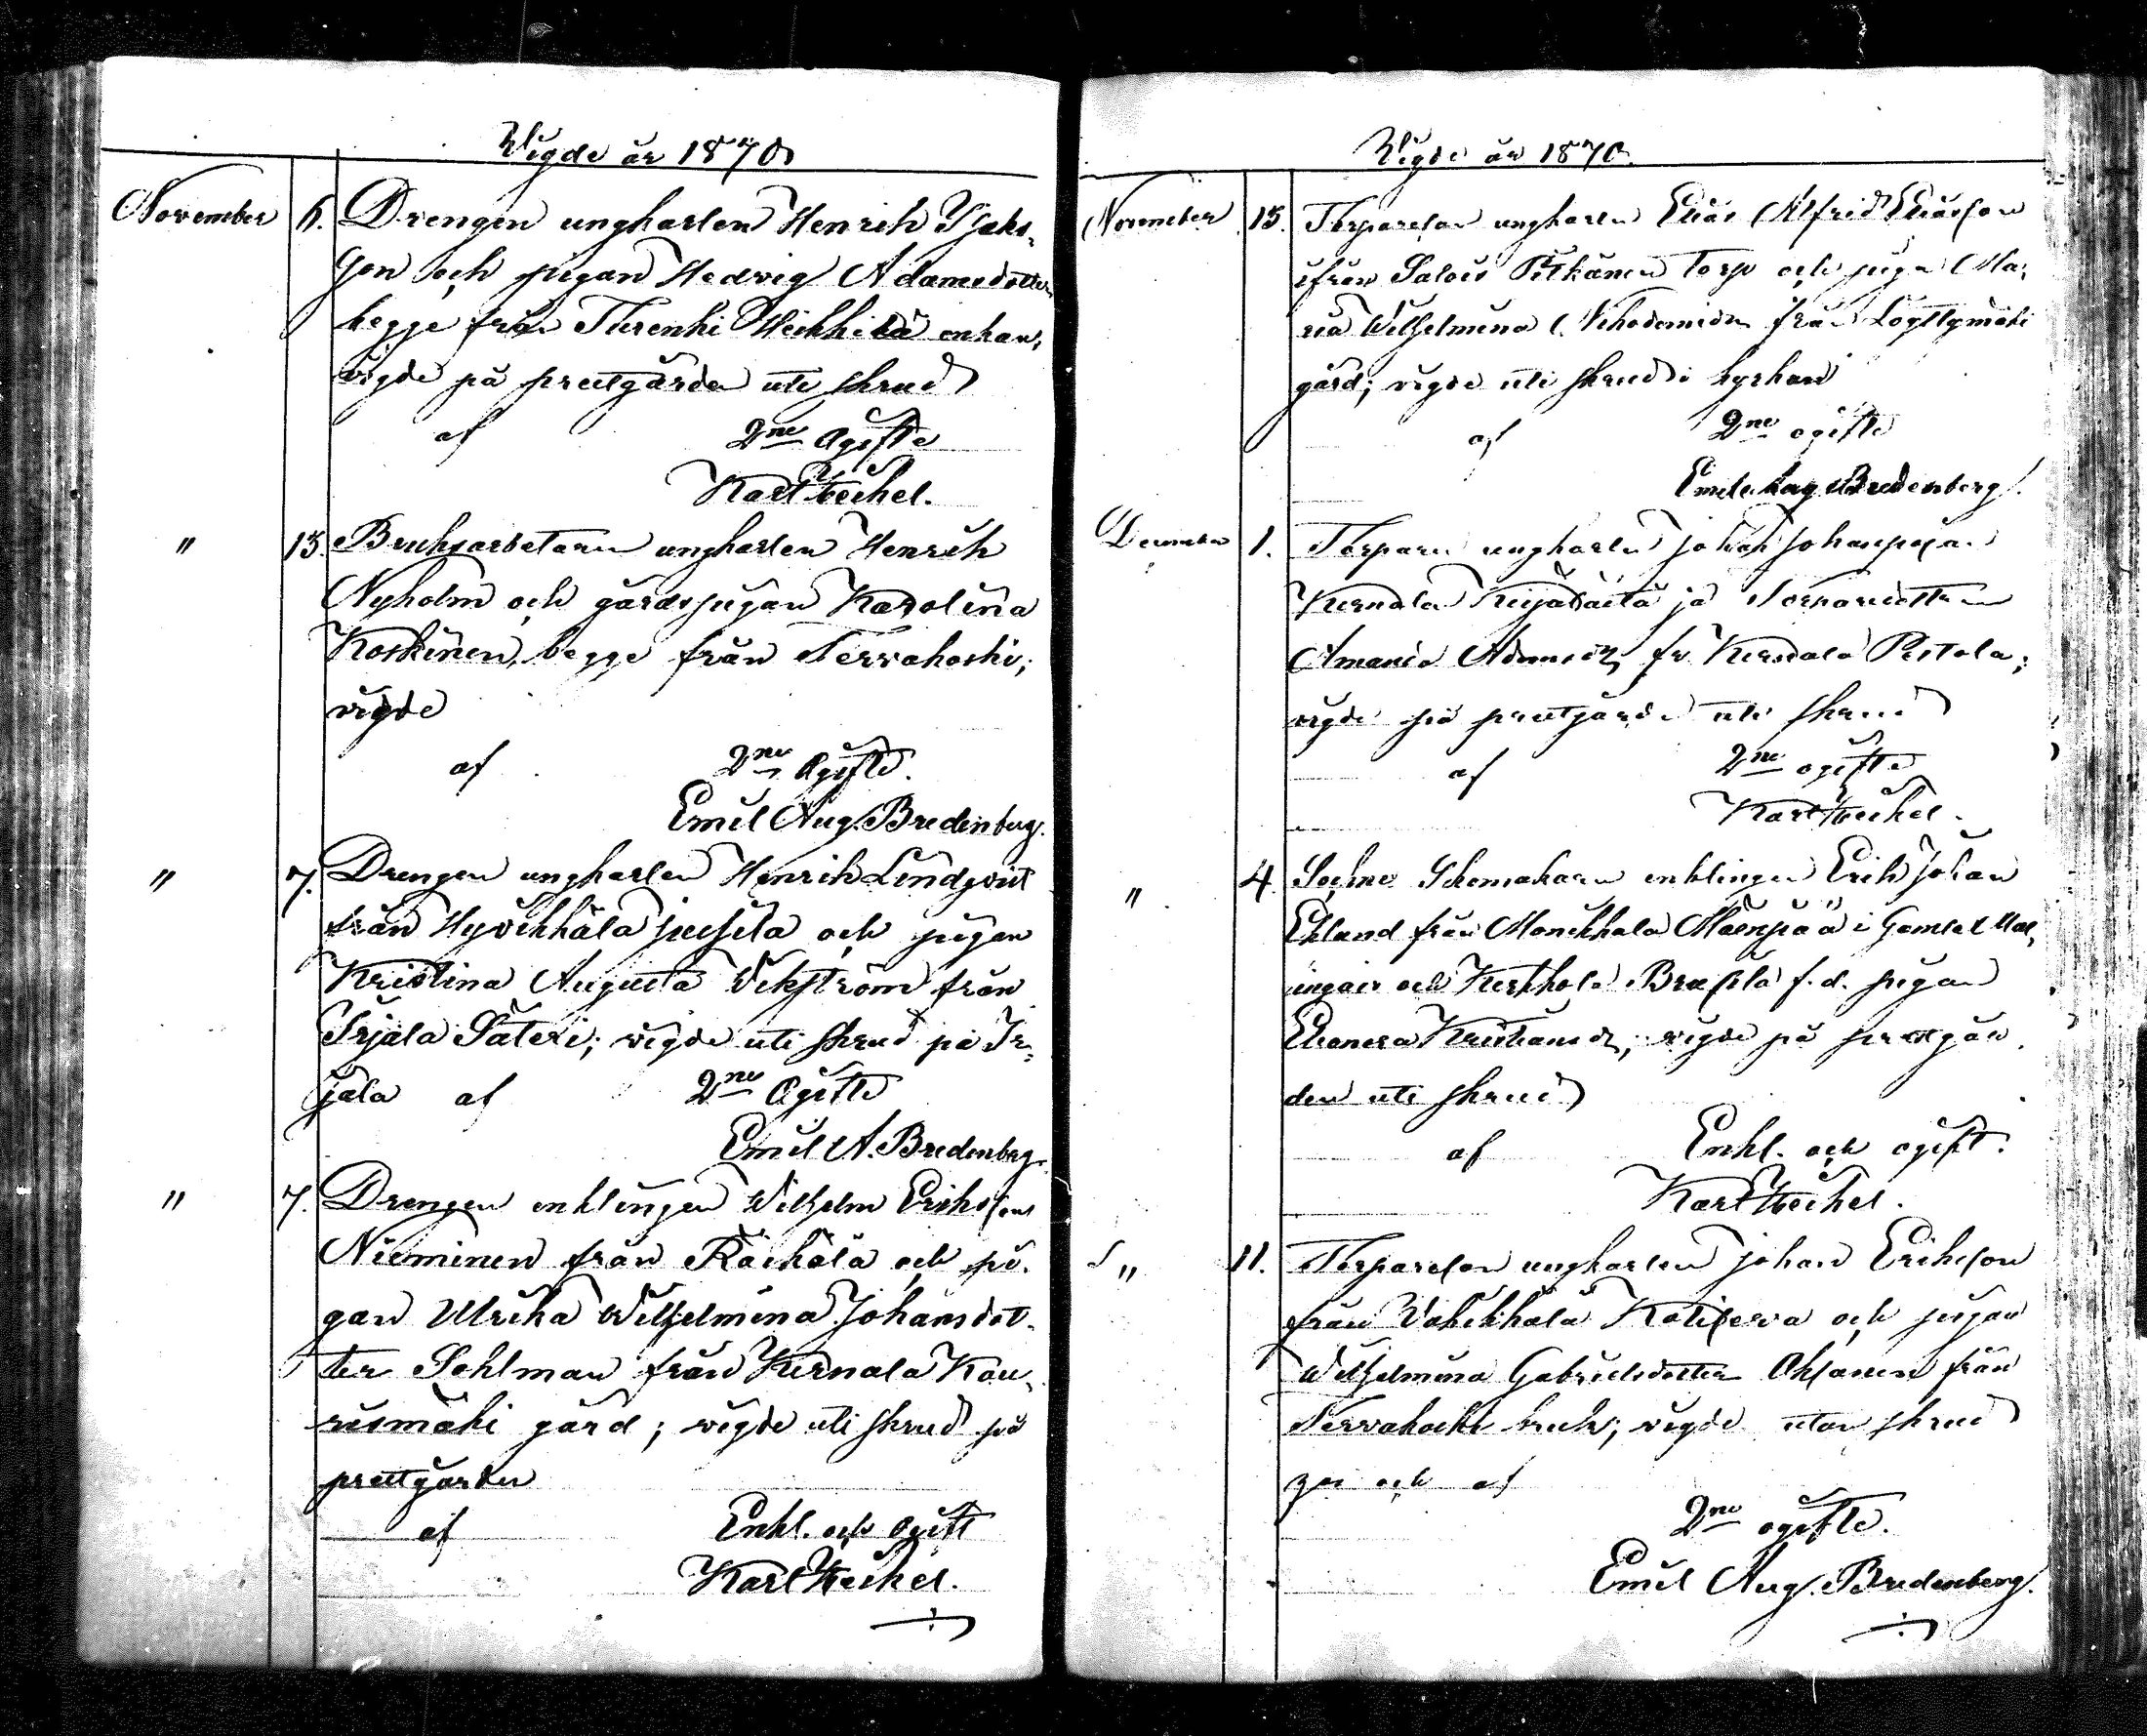 Vigde år 1870
November 6. Drengen ungkarlen Henrik Isaks-
son och pigan Hedvig Adamsdotter
begge från Turenki Heikkilä enkan,
vigde på prestgården uti skrud
af 2ne Ogifte
Karl Heikel.
" 15. Bruksarbetaren ungkarlen Henrik
Nyholm och gårdspigan Karolina
Koskinen, begge från Tervakoski;
vigde
af 2ne Ogifte.
Emil Aug. Bredenberg.
" 7. Drengen ungkarlen Henrik Lindqvist
från Hyvikkälä Jussila och pigan
Kristina Augusta Vikström från
Irjala Säteri; vigde uti skrud på Ir-
jala af 2ne Ogifte
Emil A. Bredenberg.
" 7. Drengen enklingen Wilhelm Eriksson
Nieminen från Räikälä och pi-
gan Ulrika Wilhelmina Johansdot-
ter Sohlman från Kernala Kau-
rismäki gård; vigde uti skrud på
prestgården
af Enkl. och Ogift
Karl Heikel.
Vigde år 1870.
November 15. Torpareson ungkarlen Elias Alfrid Eliasson
ifrån Salois Pitkänen torp och pigan Ma-
ria Wilhelmina från Löyttymäki
gård; vigde uti skrud i kyrkan
af 2ne ogifte
Emil Aug. Bredenberg.
December 1. Torparen ungkarlen Johan
Kernala ja Torparedottren
Amanda fr. Kernala Pertola;
vigde på prestgården uti skrud
af 2ne ogifte
Karl Heikel.
" 4. Sockne Skomakaren enklingen Erik Johan
Eklund från Monikkala Mäenpää i
och Kerkkola f.d. pigan
Eleonora vigde på prestgår-
den uti skrud
af Enkl. och ogift.
Karl Heikel.
" 11. Torpareson ungkarlen Johan Eriksson
från Vähikkälä och pigan
Wilhelmina Gabrielsdotter Oksanen från
Tervakoski bruk; vigde utan skrud
och af
2ne ogifte.
Emil Aug. Bredenberg.